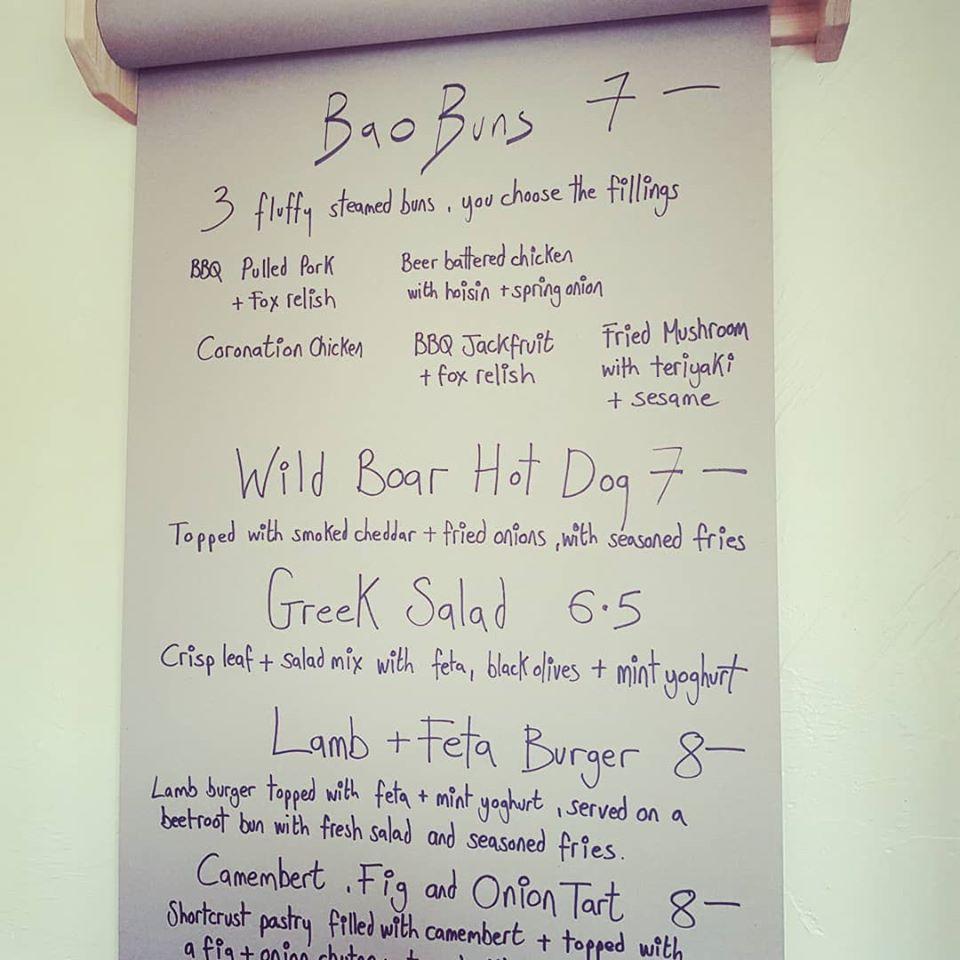 Bao Buns 7 —
3 fluffy steamed buns, you choose the fillings
BBQ Pulled Pork
+ Fox relish
Beer battered chicken
with hoisin + spring onion
Coronation Chicken
BBQ Jackfruit
+ fox relish
Fried Mushroom
with teriyaki
+ sesame
Wild Boar Hot Dog 7 —
Topped with smoked cheddar + fried onions, with seasoned fries
Greek Salad 6.5
Crisp leaf + salad mix with feta, black olives + mint yoghurt
Lamb + Feta Burger 8 —
Lamb burger topped with feta + mint yoghurt, served on a
beetroot bun with fresh salad and seasoned fries.
Camembert, Fig and Onion Tart 8 —
Shortcrust pastry filled with camembert + topped with
a fig + onion